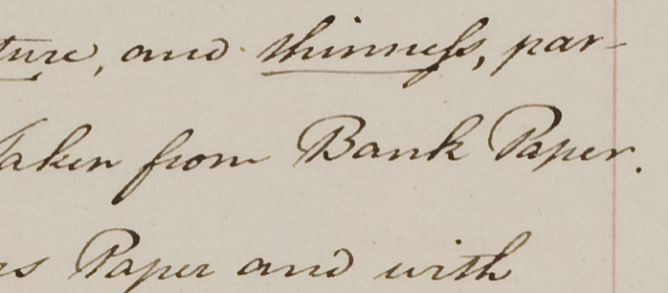 ture, and thinneſs, par-
taken from Bank Paper.
rs Paper and with